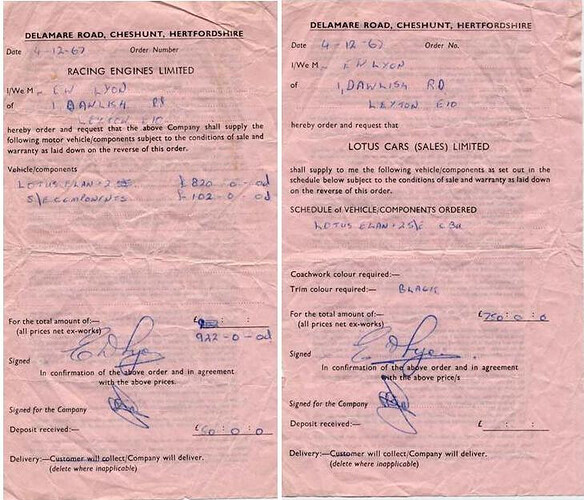 DELAMARE ROAD, CHESHUNT, HERTFORDSHIRE
Date 4-12-67 Order Number
RACING ENGINES LIMITED
I/We M EW LYON
of 1, DAWLISH RD
LEYTON E10
hereby order and request that the above Company shall supply the
following motor vehicle/components subject to the conditions of sale and
warranty as laid down on the reverse of this order.
Vehicle/components
LOTUS ELAN +2 £ 820-0-0d
S/E COMPONENTS £ 102-0-0d
For the total amount of:— £
(all prices net ex-works) 922-0-0d
Signed
In confirmation of the above order and in agreement
with the above prices.
Signed for the Company
Deposit received:— £ 50 : 0 : 0
Delivery:—Customer will collect/Company will deliver.
(delete where inapplicable)
DELAMARE ROAD, CHESHUNT, HERTFORDSHIRE
Date 4-12-67 Order No.
I/We M EW LYON
of 1, DAWLISH RD
LEYTON E10
hereby order and request that
LOTUS CARS (SALES) LIMITED
shall supply to me the following vehicle/components as set out in the
schedule below subject to the conditions of sale and warranty as laid down
on the reverse of this order.
SCHEDULE of VEHICLE/COMPONENTS ORDERED
LOTUS ELAN +2 S/E
Coachwork colour required:—
Trim colour required:— BLACK
For the total amount of:— £ 750 : 0 : 0
(all prices net ex-works)
Signed
In confirmation of the above order and in agreement
with the above price/s
Signed for the Company
Deposit received:— £ : :
Delivery:—Customer will collect/Company will deliver.
(delete where inapplicable)